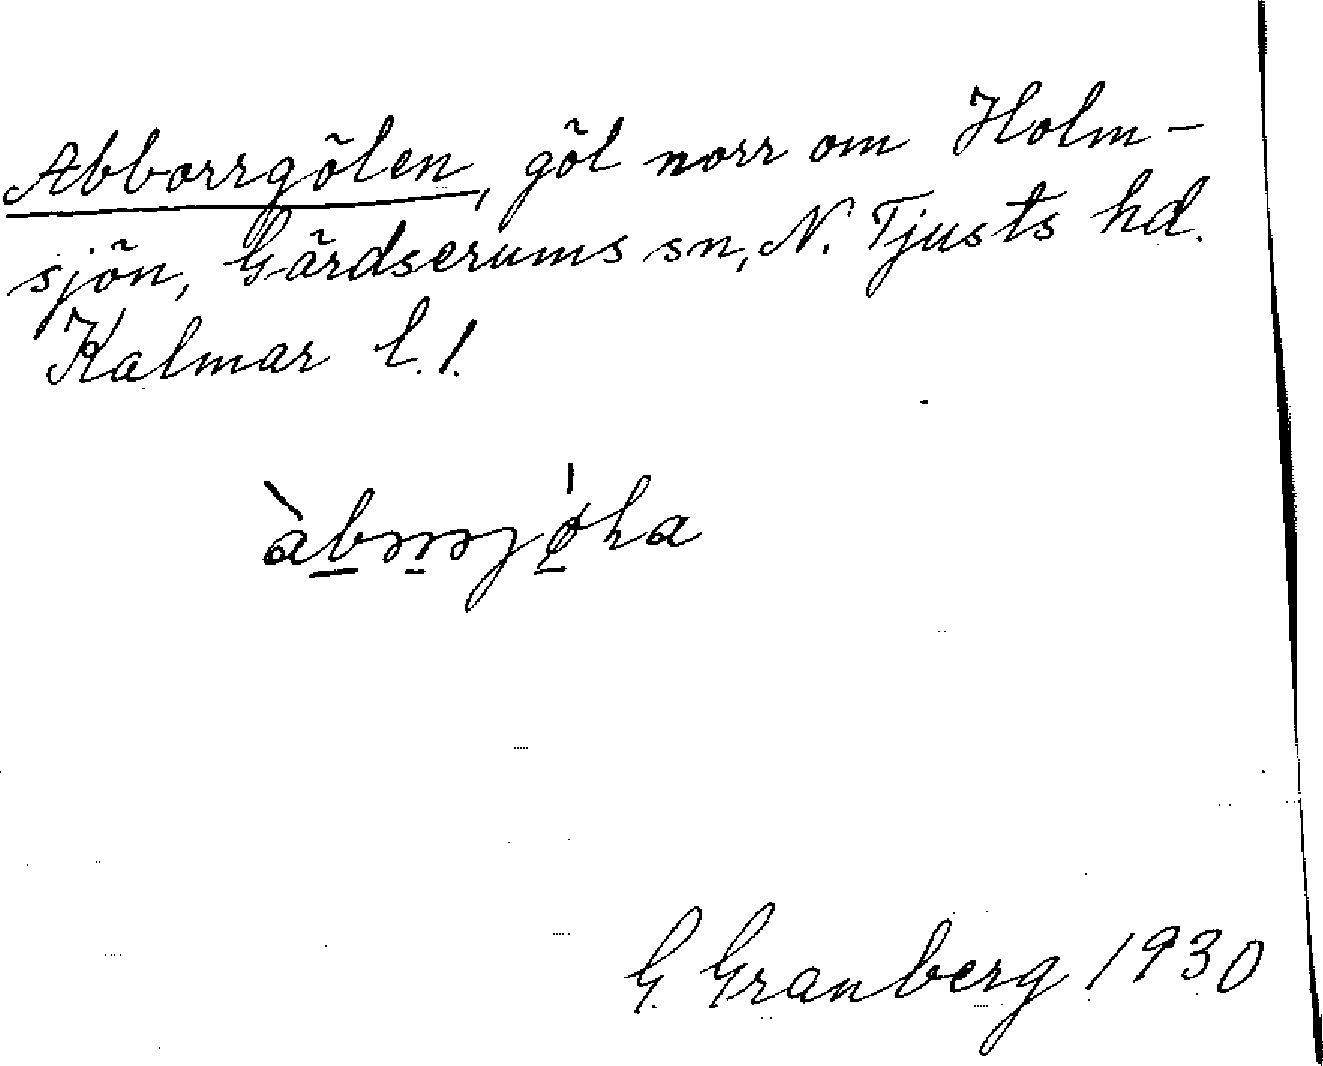 Abborrgölen, göl norr om Holm-
sjön, Gärdserums sn, N. Tjusts hd.
Kalmar l.
G. Granberg 1930